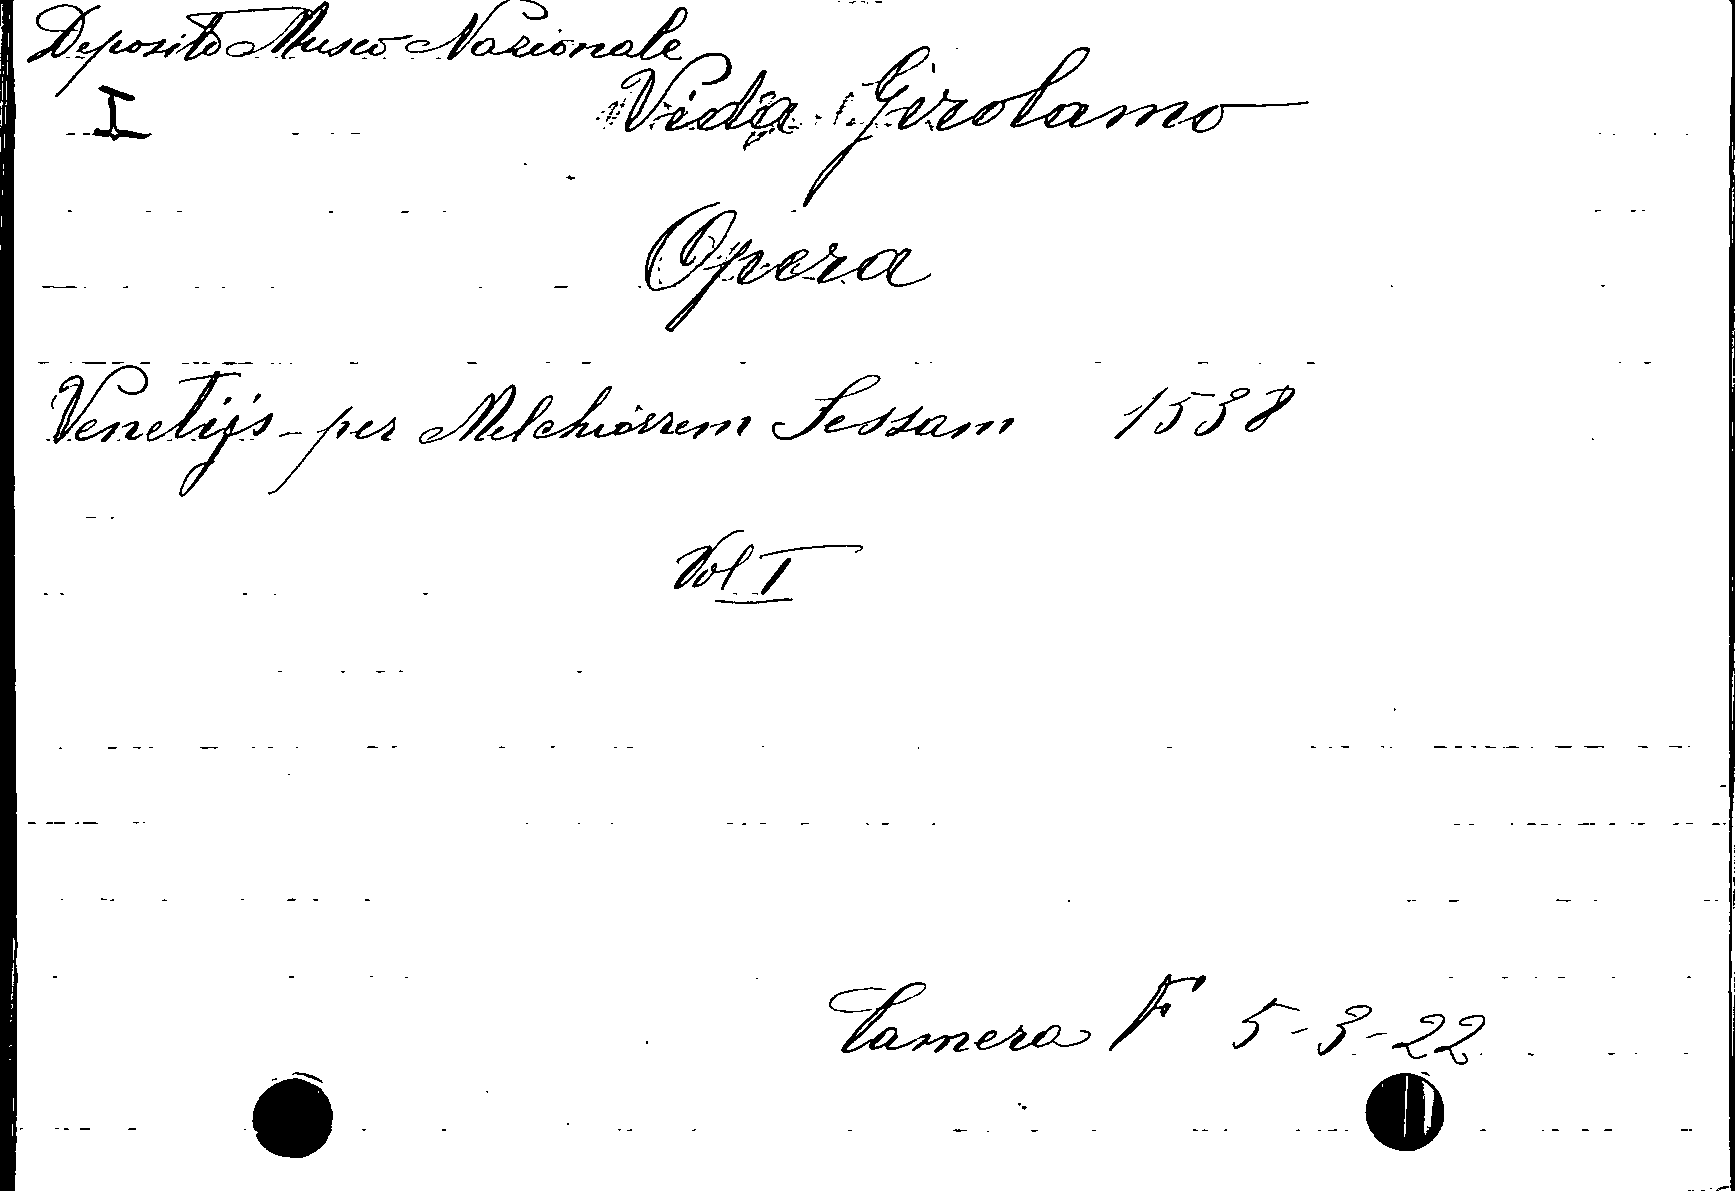 Deposito Museo Nazionale
I
Vida Girolamo
Opera
Venetijs - per Melchiorrem Sessam 1538
Vol I
Camera F 5-3-22